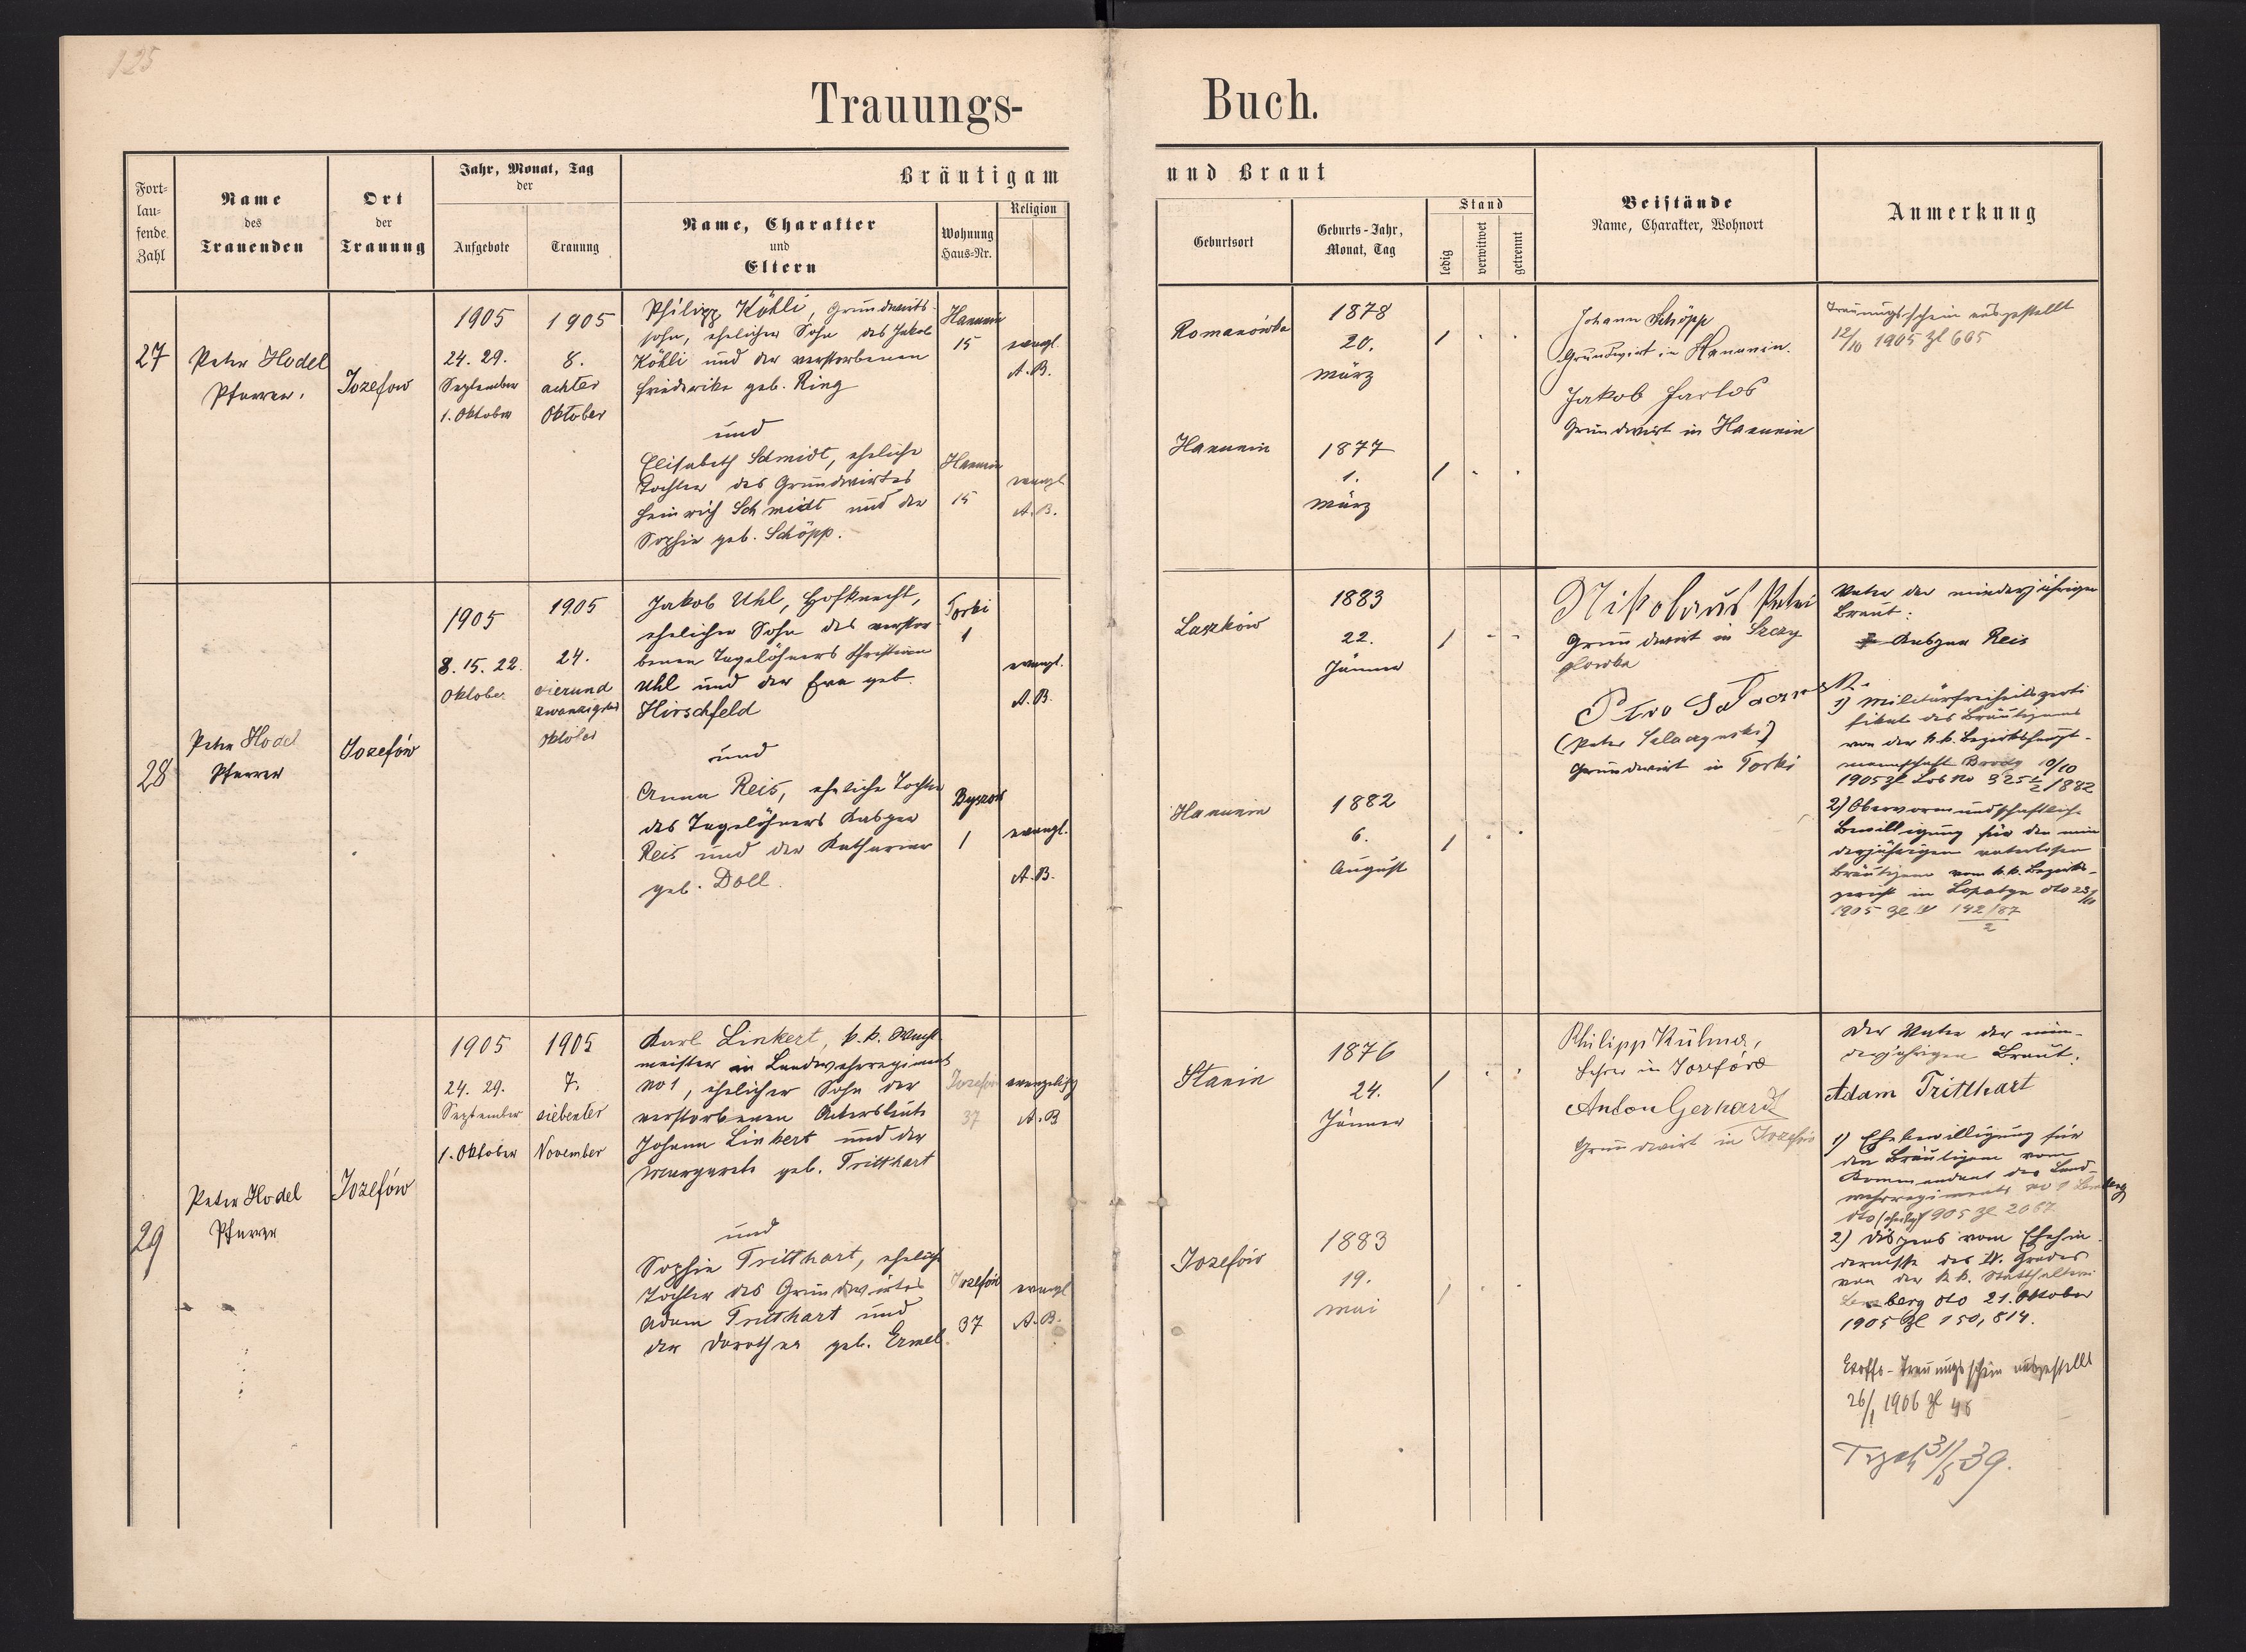 125
Trauungs-Buch.
Fort-
lau-
fende
Zahl
Name
des
Trauenden
Ort
der
Trauung
Jahr, Monat, Tag
der
Aufgebote
Trauung
Bräutigam und Braut
Name, Charakter
und
Eltern
Wohnung
Haus-Nr.
Religion
Geburtsort
Geburts-Jahr,
Monat, Tag
Stand
ledig
verwitwet
getrennt
Beistände
Name, Charakter, Wohnort
Anmerkung
27
Peter Hodel
Pfarrer.
Jozefow
1905
24. 29.
September
1. Oktober
1905
8.
achter
Oktober
Philipp Köhli, Grundwirts-
sohn, ehelicher Sohn des Jakob
Köhli und der verstorbenen
Friederike geb. Ring
und
Elisabeth Schmidt, eheliche
Tochter des Grundwirtes
Heinrich Schmidt und der
Sophie geb. Schöpp.
Hanunin
15
evangl.
A.B.
Hanunin
15
evangl.
A.B.
Romanówka
1878
20.
März
Hanunin
1877
1.
März
Johann Schöpp
Grundwirt in Hanunin.
Jakob Harlos
Grundwirt in Hanunin
Trauungsschein ausgestellt
12/10 1905 Zl 605
28
Peter Hodel
Pfarrer
Jozefów
1905
8. 15. 22.
Oktober
1905
24.
vierund
zwanzigster
Oktober
Jakob Uhl, Hofknecht,
ehelicher Sohn des verstor-
benen Tagelöhners Christian
Uhl und der Eva geb.
Hirschfeld
und
Anna Reis, eheliche Tochter
des Tagelöhners Kaspar
Reis und der Katharina
geb. Doll.
Torki
1
evangl.
A.B.
Byszów
1
evangl.
A.B.
Laszków
1883
22.
Jänner
Hanunin
1882
6.
August
Nikolaus Petri
Grundwirt in Szczy
glowka
(Peter Salaczynski)
Grundwirt in Torki
Vater der minderjährigen
Braut:
Kaspar Reis
1) Militärfreiheitszerti
fikat des Bräutigams
von der k.k. Bezirkshaupt-
mannschaft Brody 10/10
1905 Zl
2) Obervormundschaftliche
Bewilligung für den min
derjährigen vaterlosen
Bräutigam vom k.k. Bezirks-
gericht in Lopatyn dto 23/10
1905 Zl 142/87
2
29
Peter Hodel
Pfarrer
Jozefów
1905
24. 29.
September
1. Oktober
1905
7.
siebenter
November
Karl Linkert, k.k. Wacht
meister im Landwehrregiment
No 1, ehelicher Sohn der
verstorbenen Ackersleute
Johann Linkert und der
Margareta geb. Tritthart
und
Sophie Tritthart, eheliche
Tochter des Grundwirtes
Adam Tritthart und
der Dorothea geb. Ermel.
Jozefów
37
evangelisch
A.B
Jozefów
37
evangl
A.B.
Stanin
1876
24.
Jänner
Jozefów
1883
19.
Mai
Philipp Kühner,
Lehrer in Jozefów
Anton Gerhardt
Grundwirt in Jozefów
Der Vater der min-
derjährigen Braut:
Adam Tritthart
1) Ehebewilligung für
den Bräutigam vom
Kommandant des Land-
wehrregiments No 1 Lemberg
1905 Zl 2067
2) Dispens vom Ehehin
dernisse des IV. Grades
von der k.k. Statthalterei
Lemberg dto 21. Oktober
1905 Zl 150,814.
Exoffo-Trauungsschein ausgestellt
26/1 1906 Zl 46
31/5 39.